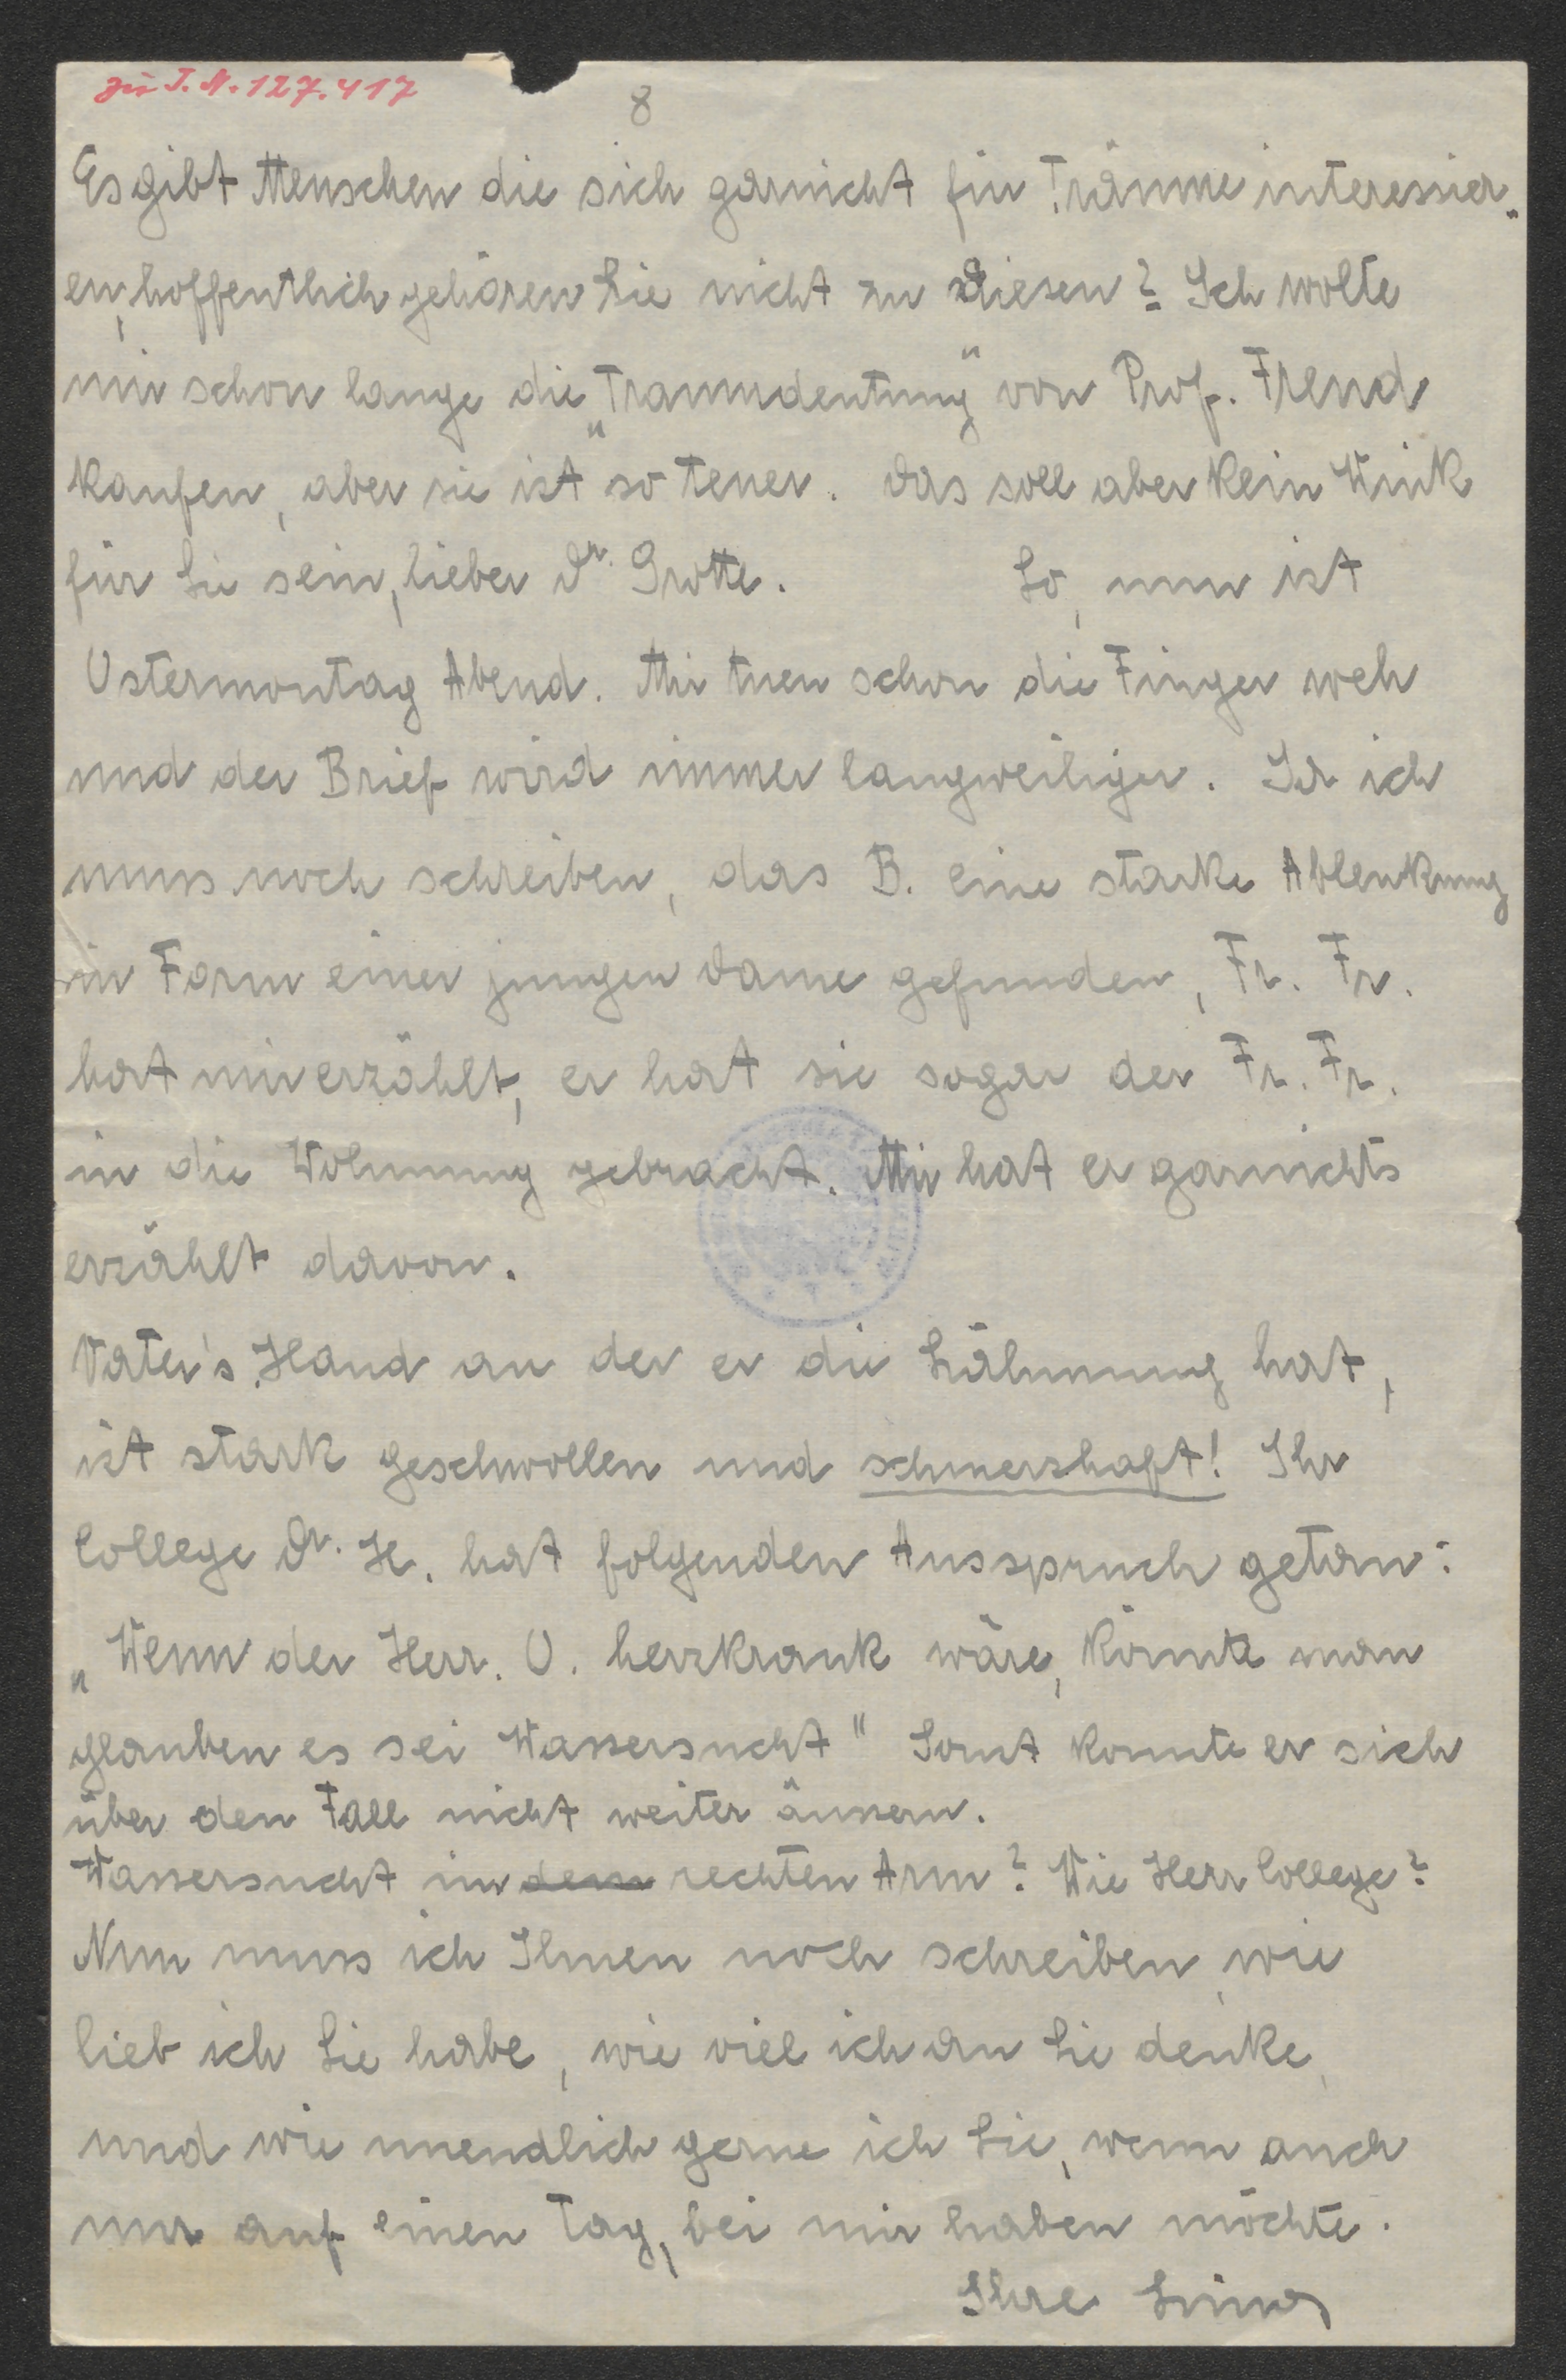 zu I.N. 127.417
8
Es gibt Menschen die sich garnicht für Träume interessier„
en, hoffentlich gehören Sie nicht zu diesen? Ich wollte
mir schon lange die „Traumdeutung" von Prof. Freud
kaufen, aber sie ist so teuer. Das soll aber kein Wink
für Sie sein, lieber Dr. Grotte. So, nun ist
Ostermontag Abend. Mir tuen schon die Finger weh
und der Brief wird immer langweiliger. Ich
muss noch schreiben, das B. eine starke Ablenkung
in Form einer jungen Dame gefunden, Fr. Fr.
hat mir erzählt, er hat sie sogar der Fr. Fr.
in die Wohnung gebracht. Mir hat er garnichts
erzählt davon.
Vater's Hand an der er die Lähmung hat,
ist stark geschwollen und schmerzhaft! Ihr
College Dr. H. hat folgenden Ausspruch getan:
„Wenn der Herr. O. herzkrank wäre, könnte man
glauben es sei Wassersucht" Sonst konnte er sich
über den Fall nicht weiter äussern.
Wassersucht im dem rechten Arm? Wie Herr College?
Nun muss ich Ihnen noch schreiben, wie
lieb ich Sie habe, wie viel ich an Sie denke,
und wie unendlich gerne ich Sie, wenn auch
nur auf einen Tag, bei mir haben möchte.
Ihre